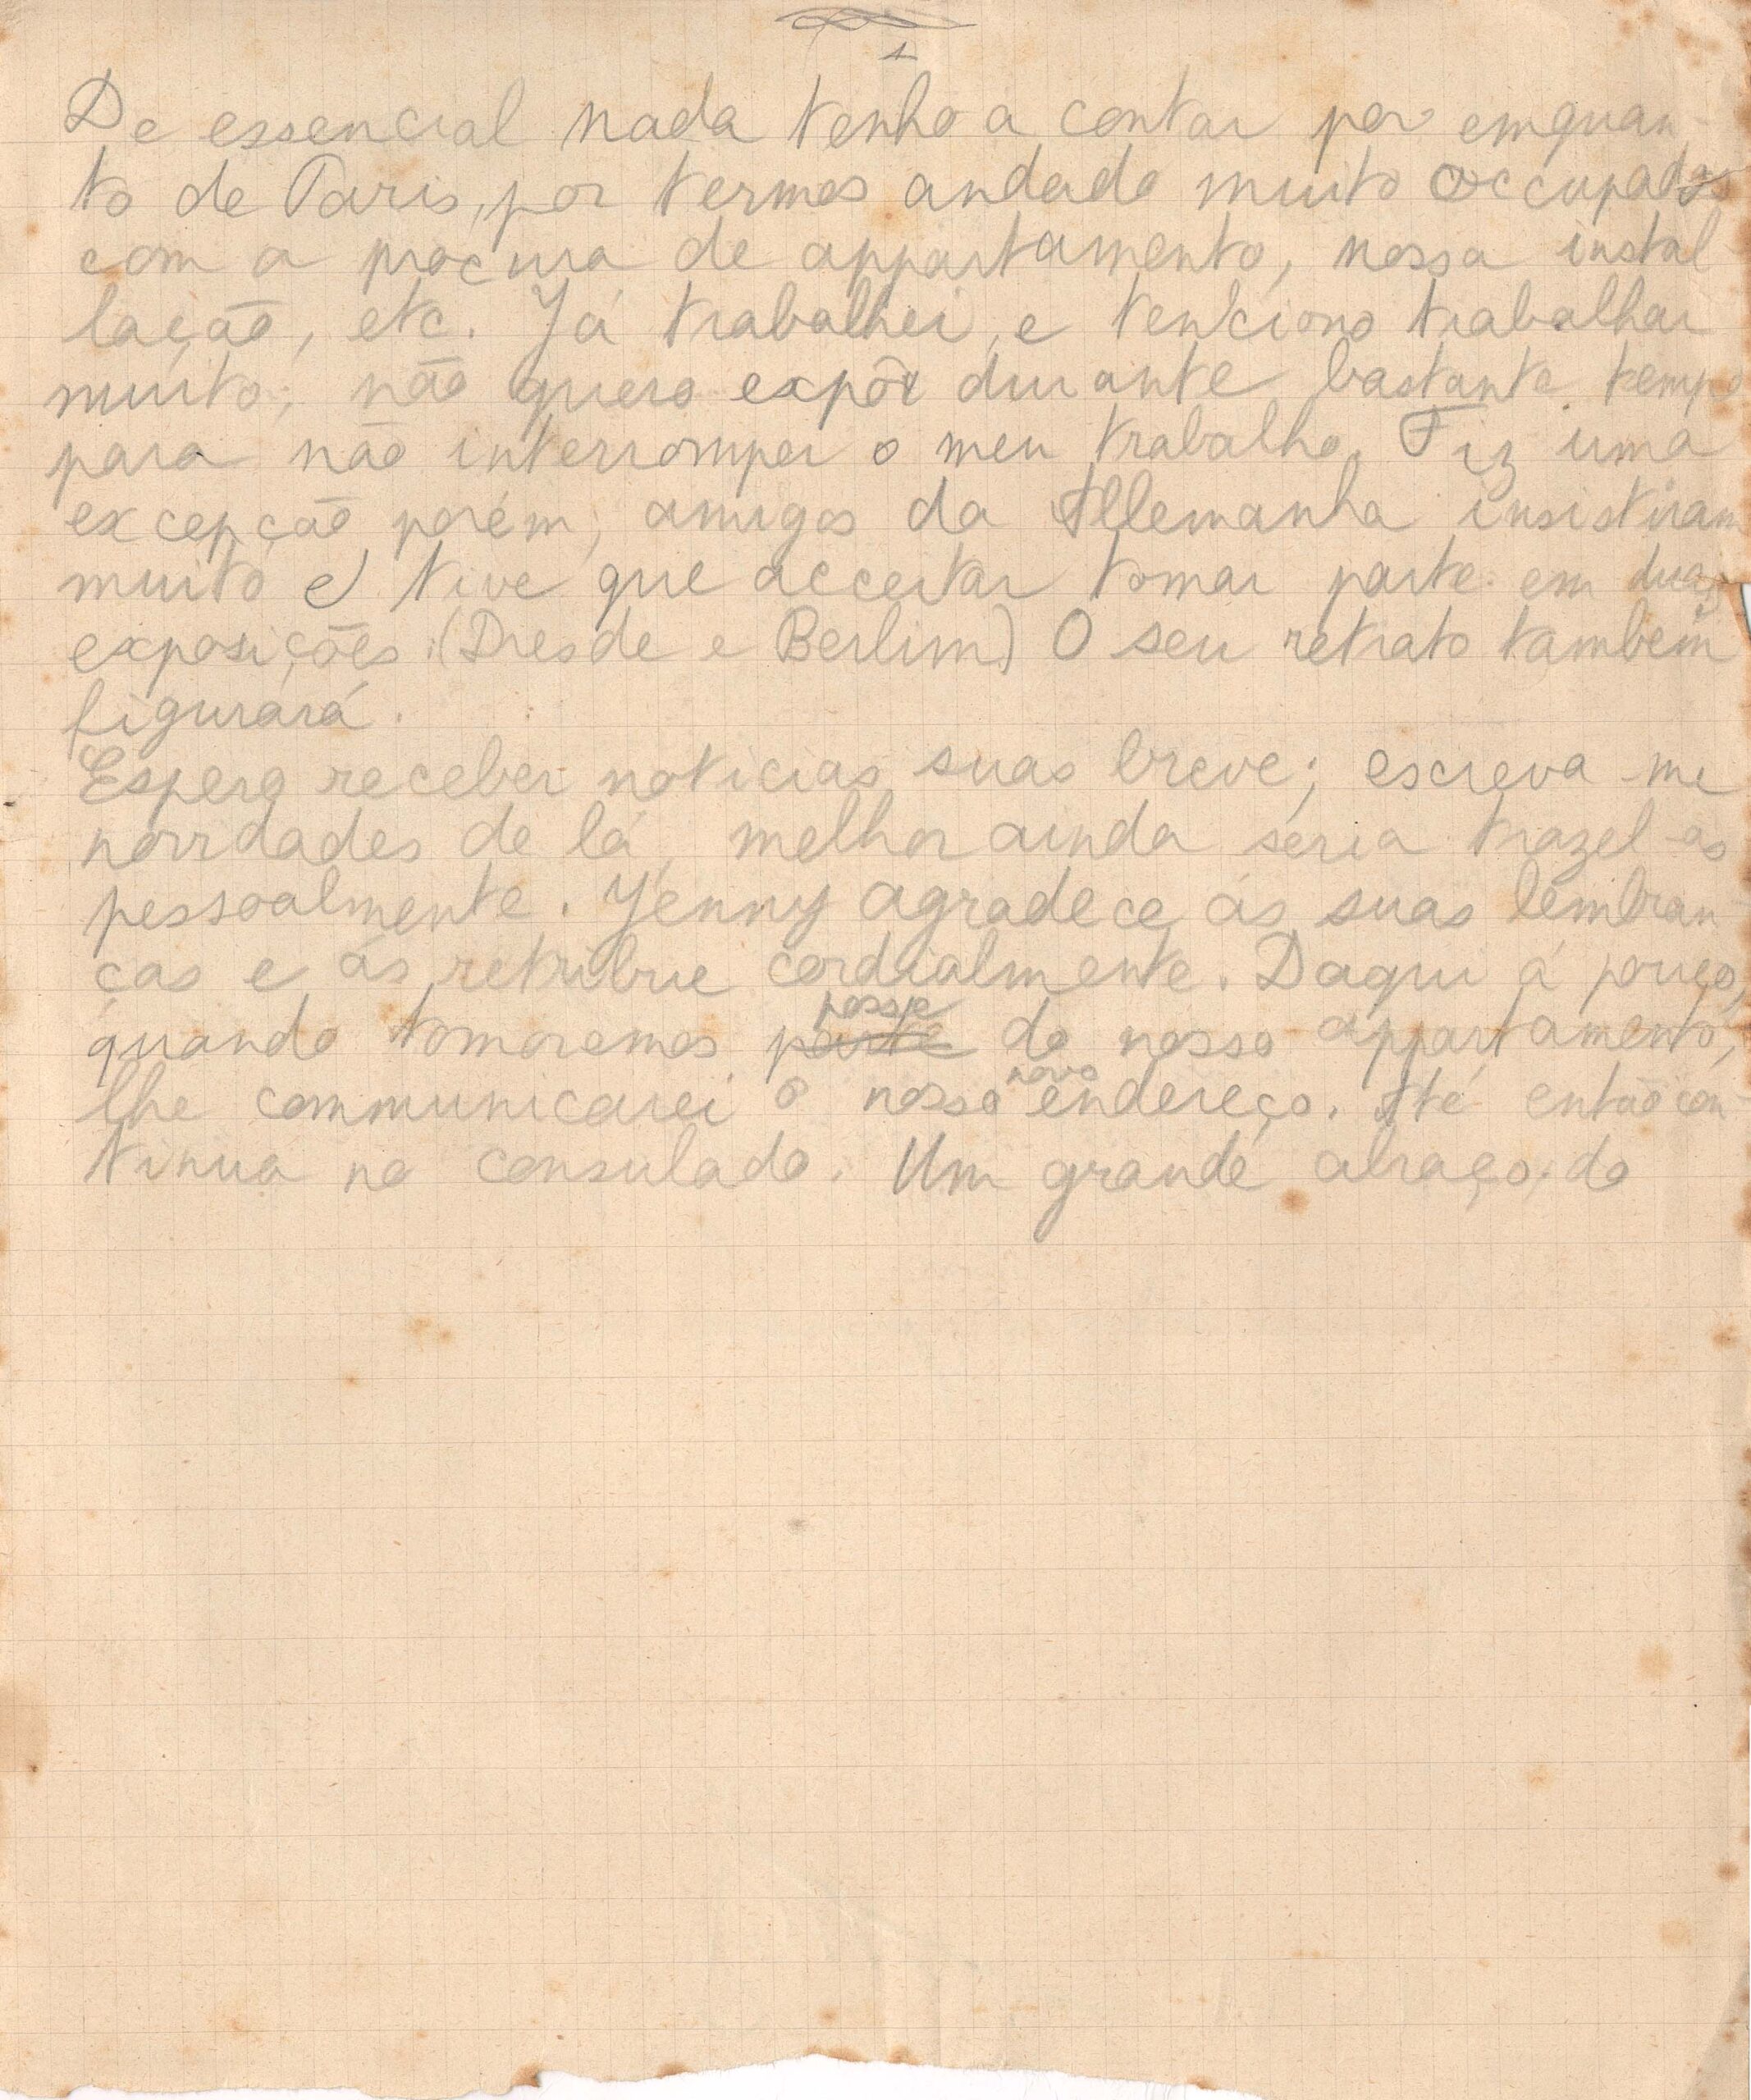 1
De essencial nada tenho a contar por emquan-
to de Paris, por termos andado muito occupados
com a procura de appartamento, nossa instal-
lação, etc. Já trabalhei, e tenciono trabalhar
muito; não quero expôr durante bastante tempo
para não interromper o meu trabalho. Fiz uma
excepção porém, amigos da Allemanha insistiram
muito e tive que acceitar tomar parte em duas
exposições (Dresde e Berlim) O seu retrato tambem
figurará.
Espero receber noticias suas breve; escreva-me
novidades de lá, melhor ainda seria trazel-as
pessoalmente. Jenny agradece ás suas lembran-
ças e ás retribue cordialmente. Daqui á pouco,
quando tomaremos parte posse do nosso appartamento,
lhe communicarei o nosso novo endereço. Até então con-
tinua no consulado. Um grande abraço do